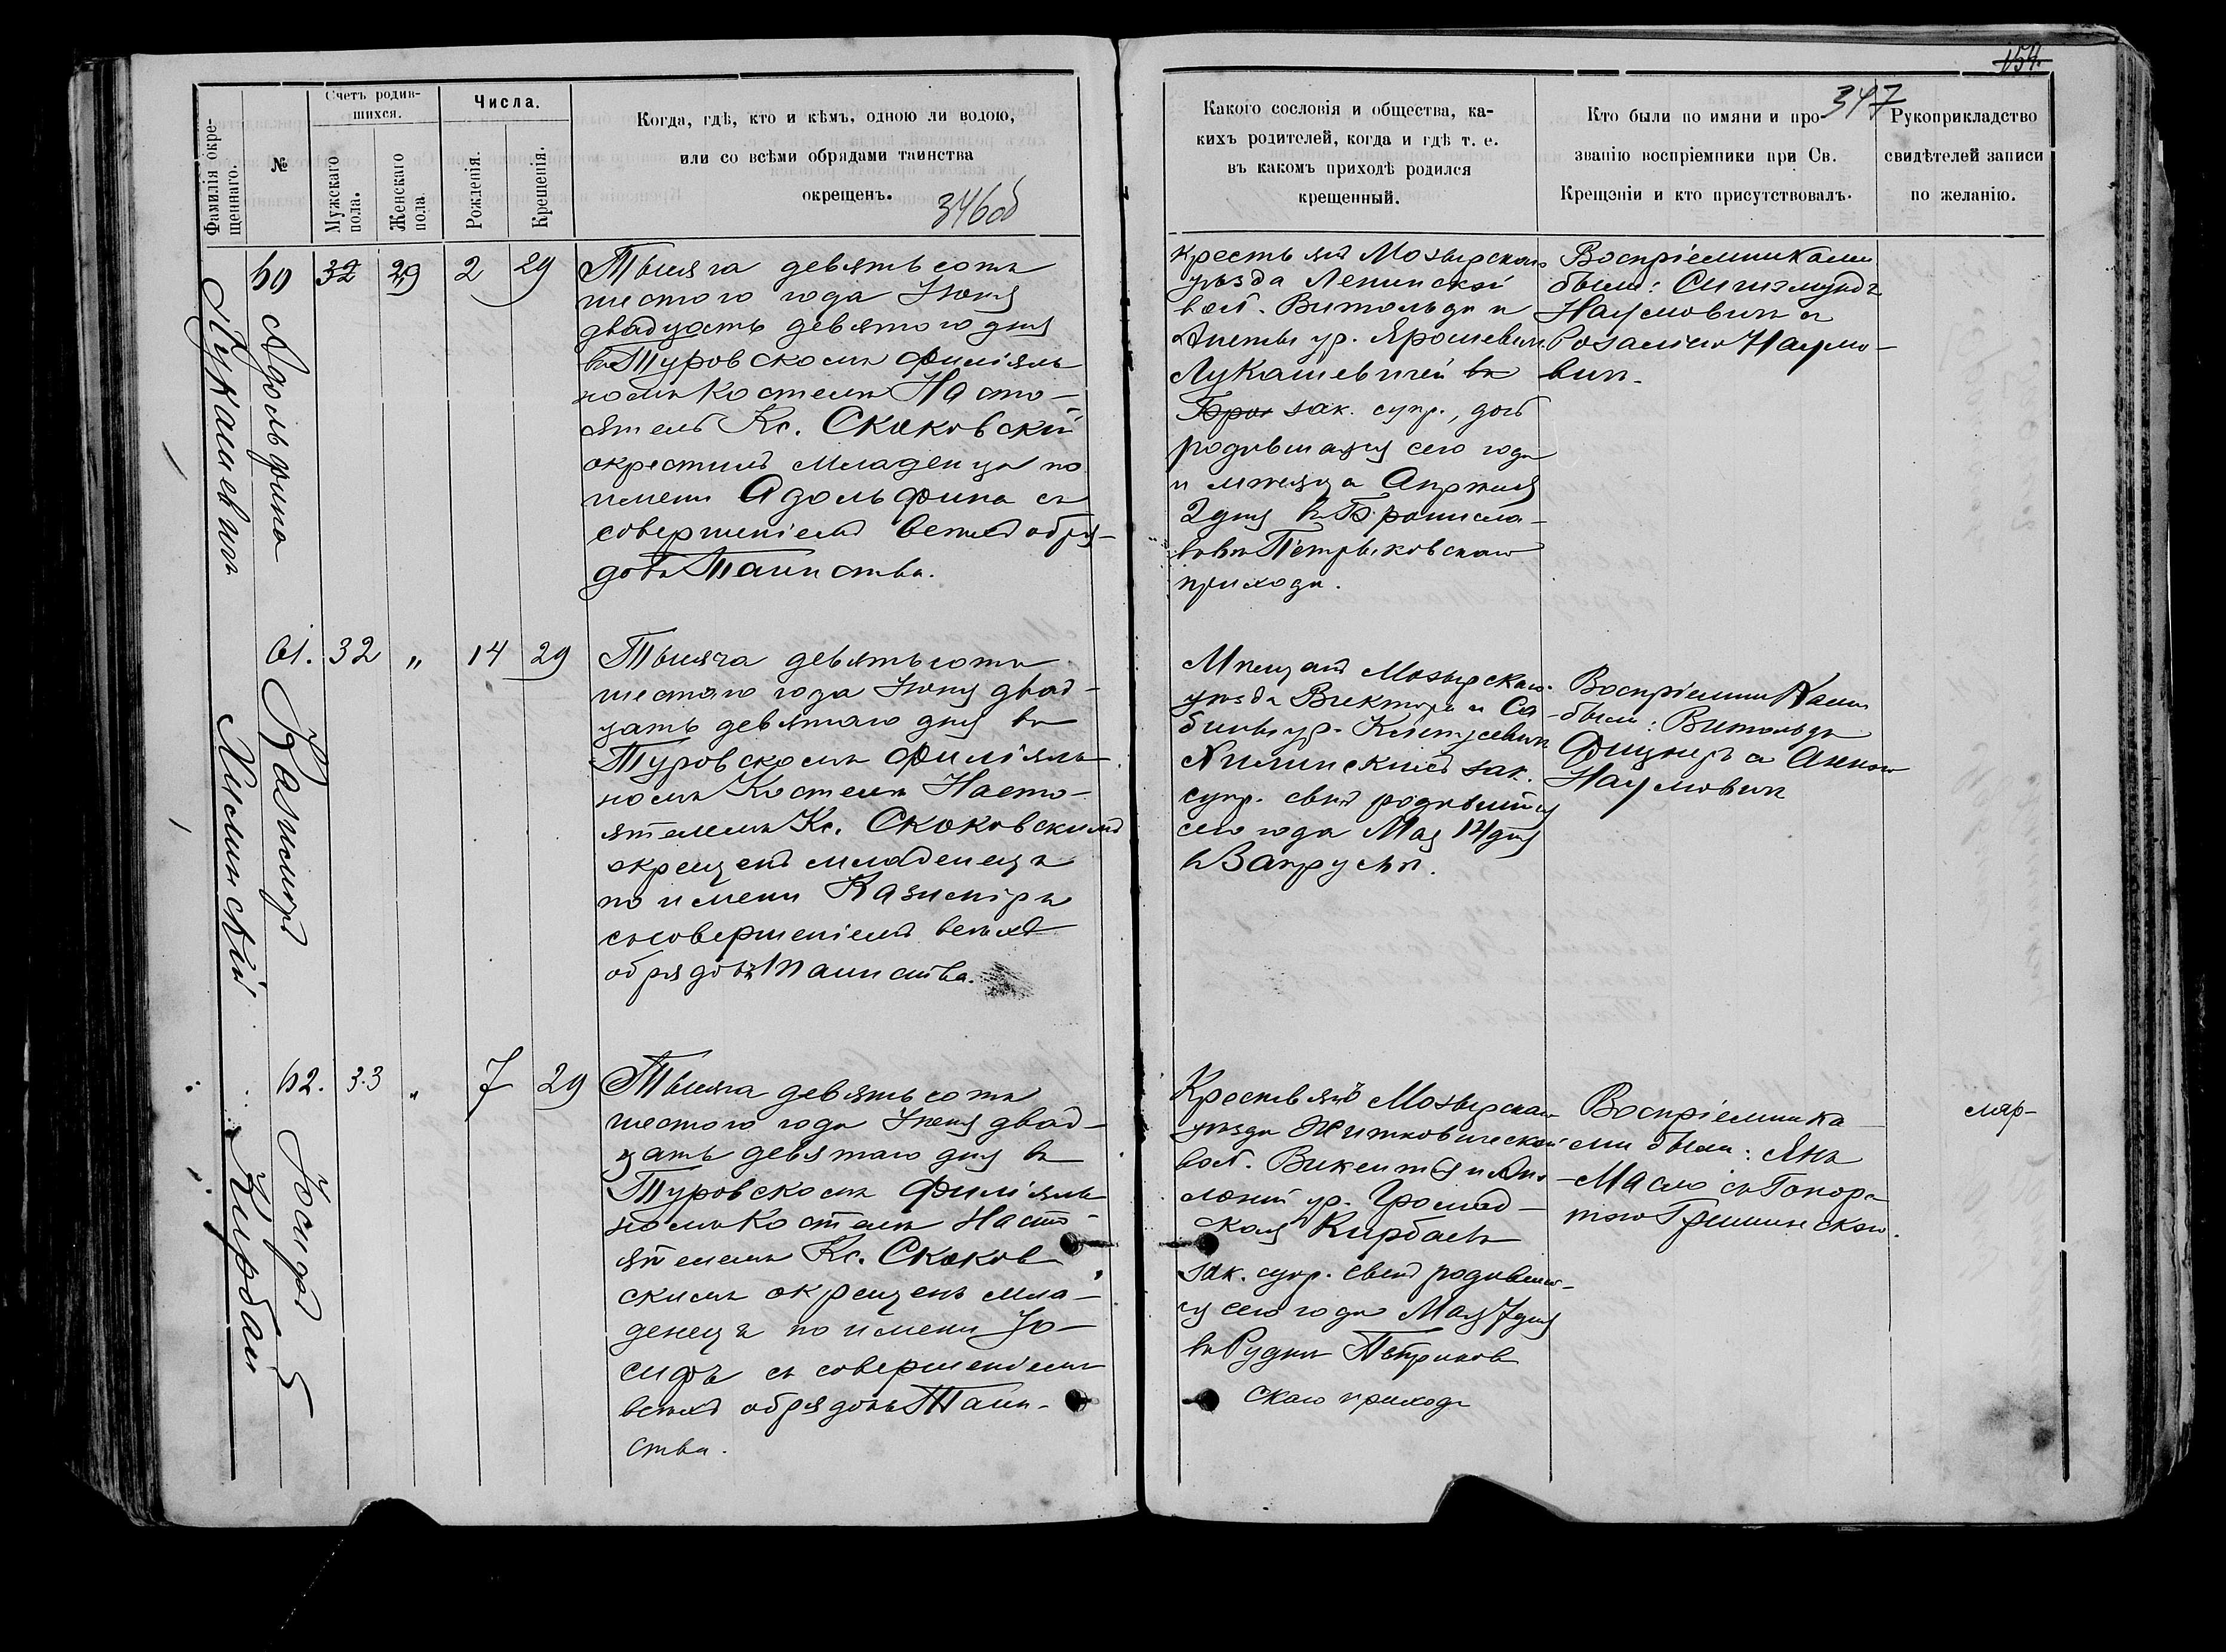 154.
347
Фамилія окре-
щеннаго.
№
Счетъ родив-
шихся.
Мужскаго
пола.
Женскаго
пола.
Числа.
Рожденія.
Крещенія.
Когда, гдѣ, кто и кѣмъ, одною ли водою,
или со всѣми обрядами таинства
окрещенъ.
346об
Какого сословія и общества, ка-
кихъ родителей, когда и гдѣ т. е.
въ какомъ приходѣ родился
крещенный.
Кто были по имяни и про-
званію воспріемники при Св.
Крещэніи и кто присутствовалъ.
Рукоприкладство
свидѣтелей записи
по желанію.
Лукашевичъ
Адольфина
60 32 29 2 29
Тысяча девятьсотъ
шестого года Іюня
двадцать девятого дня
въ Туровскомъ Филіяль
номъ Костелѣ Насто-
ятель Кс. Скаковскій
окрестилъ младенца по
имени Адольфина съ
совершеніемъ всѣхъ обря-
довъ Таинства.
Крестьянъ Мозырскаго
уѣзда Ленинской
вол. Витольда и
Анеты ур. Ярошевичъ
Лукашевичей въ
Бро зак. супр., дочь
родившаяся сего года
и мѣсяца Апрѣля
2 дня въ Брониска-
вовѣ Петрыковскаго
прихода.
Воспріемниками
были: Сигизмундъ
Наумовичъ и
Розалія Наумо-
вичъ.
Хилинскій
Казиміръ
61. 32 " 14 29
Тысяча девятьсотъ
шестого года Іюня двад-
цать девятаго дня въ
Туровскомъ Филіяль
номъ Костелѣ Насто-
ятелемъ Кс. Скаковскимъ
окрещенъ младенецъ
по имени Казиміръ
съ совершеніемъ всѣхъ
обрядовъ Таинства.
Мѣщанъ Мозырскаго
уѣзда Виктора и Са
бины ур.
Хилинскихъ зак.
супр. сынъ родившійся
сего года Мая 14 дня
въ
Воспріемниками
были: Витольдъ
Фицнеръ и Анною
Наумовичъ
Кирбай
Іосифъ
62. 33 " 7 29
Тысяча девятьсотъ
шестого года Іюня двад-
цать девятаго дня въ
Туровскомъ Филіяль
номъ Костелѣ Насто-
ятелемъ Кс. Скаков
скимъ окрещенъ мла-
денецъ по имени Іо-
сифъ съ совершеніемъ
всѣхъ обрядовъ Таин-
ства.
Крестьянъ Мозырскаго
уѣзда Житковичской
вол. Викентія и Апо
лоніи ур. Громад-
ская Кирбаевъ
зак. супр. сынъ родивший-
ся сего года Мая 7 дня
въ Рудни Петриков
скаго прихода
Воспріемника
ми были: Янъ
Масло съ Гонора-
тою Гришинскою.